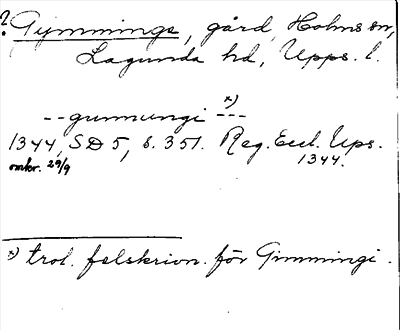 ? Gymminge, gård, Holms sn,
Lagunda hd, Upps. l.
--gunnungi --- x)
1344, SD 5, s. 351. Reg. Eccl. Ups.
omkr. 29/9 1344.
x) trol. felskrivn. för Gimmingi.